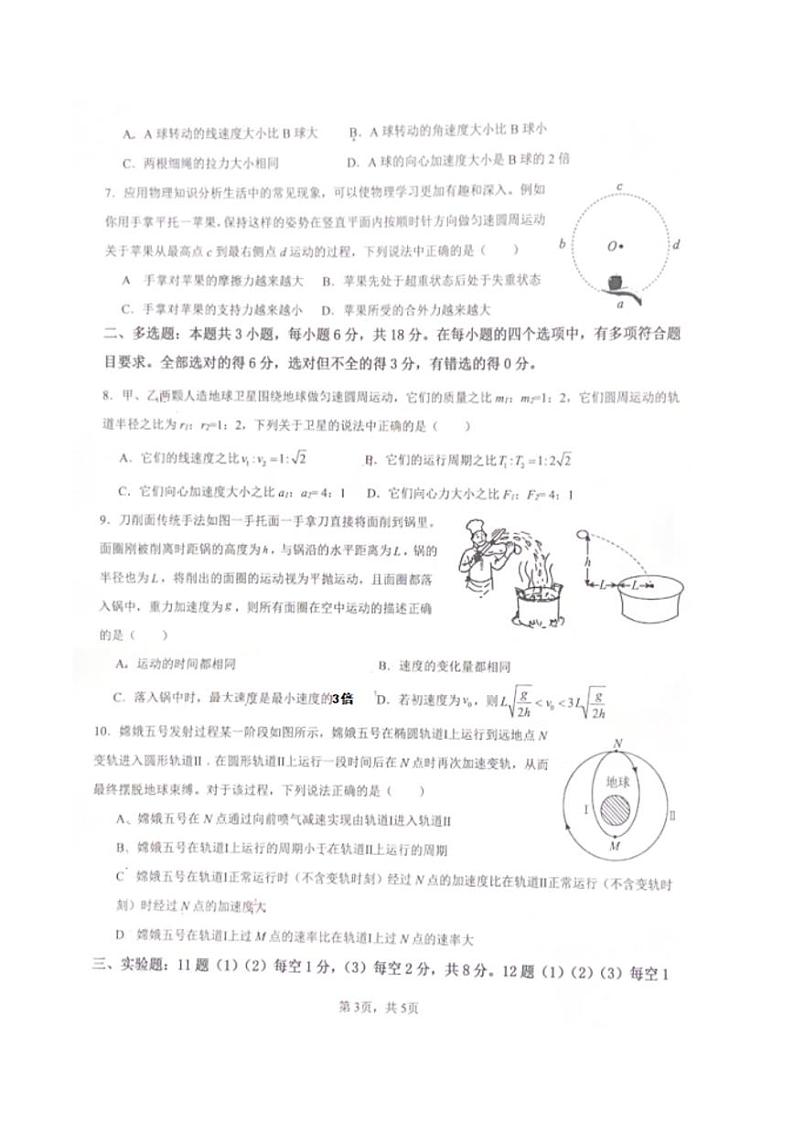 A. A 球转动的线速度大小比 B 球大 B. A 球转动的角速度大小比 B 球小
C. 两根细绳的拉力大小相同 D. A 球的向心加速度大小是 B 球的 2 倍
7. 应用物理知识分析生活中的常见现象，可以使物理学习更加有趣和深入。例如
你用手掌平托一苹果，保持这样的姿势在竖直平面内按顺时针方向做匀速圆周运动
关于苹果从最高点 c 到最右侧点 d 运动的过程，下列说法中正确的是（ ）
A 手掌对苹果的摩擦力越来越大 B. 苹果先处于超重状态后处于失重状态
C. 手掌对苹果的支持力越来越小 D. 苹果所受的合外力越来越大
c
b
O
d
a
二、多选题：本题共 3 小题，每小题 6 分，共 18 分。在每小题的四个选项中，有多项符合题
目要求。全部选对的得 6 分，选对但不全的得 3 分，有错选的得 0 分。
8. 甲、乙两颗人造地球卫星围绕地球做匀速圆周运动，它们的质量之比 m₁：m₂=1：2，它们圆周运动的轨
道半径之比为 r₁：r₂=1：2，下列关于卫星的说法中正确的是（ ）
A. 它们的线速度之比 v₁:v₂=1:√2 B. 它们的运行周期之比 T₁:T₂=1:2√2
C. 它们向心加速度大小之比 a₁：a₂= 4：1 D. 它们向心力大小之比 F₁：F₂= 4：1
9. 刀削面传统手法如图一手托面一手拿刀直接将面削到锅里。
面圈刚被削离时距锅的高度为 h，与锅沿的水平距离为 L，锅的
半径也为 L，将削出的面圈的运动视为平抛运动，且面圈都落
入锅中，重力加速度为 g，则所有面圈在空中运动的描述正确
的是（ ）
h
L
L
A. 运动的时间都相同 B. 速度的变化量都相同
C. 落入锅中时，最大速度是最小速度的3倍 D. 若初速度为 v₀，则 L√(g/2h) < v₀ < 3L√(g/2h)
10. 嫦娥五号发射过程某一阶段如图所示，嫦娥五号在椭圆轨道Ⅰ上运行到远地点 N
变轨进入圆形轨道Ⅱ．在圆形轨道Ⅱ上运行一段时间后在 N 点时再次加速变轨，从而
最终摆脱地球束缚。对于该过程，下列说法正确的是（ ）
N
地球
Ⅰ
Ⅱ
M
A、嫦娥五号在 N 点通过向前喷气减速实现由轨道Ⅰ进入轨道Ⅱ
B、嫦娥五号在轨道Ⅰ上运行的周期小于在轨道Ⅱ上运行的周期
C 嫦娥五号在轨道Ⅰ正常运行时（不含变轨时刻）经过 N 点的加速度比在轨道Ⅱ正常运行（不含变轨时
刻）时经过 N 点的加速度大
D 嫦娥五号在轨道Ⅰ上过 M 点的速率比在轨道Ⅰ上过 N 点的速率大
三、实验题：11 题（1）（2）每空 1 分，（3）每空 2 分，共 8 分。12 题（1）（2）（3）每空 1
第 3页，共 5页